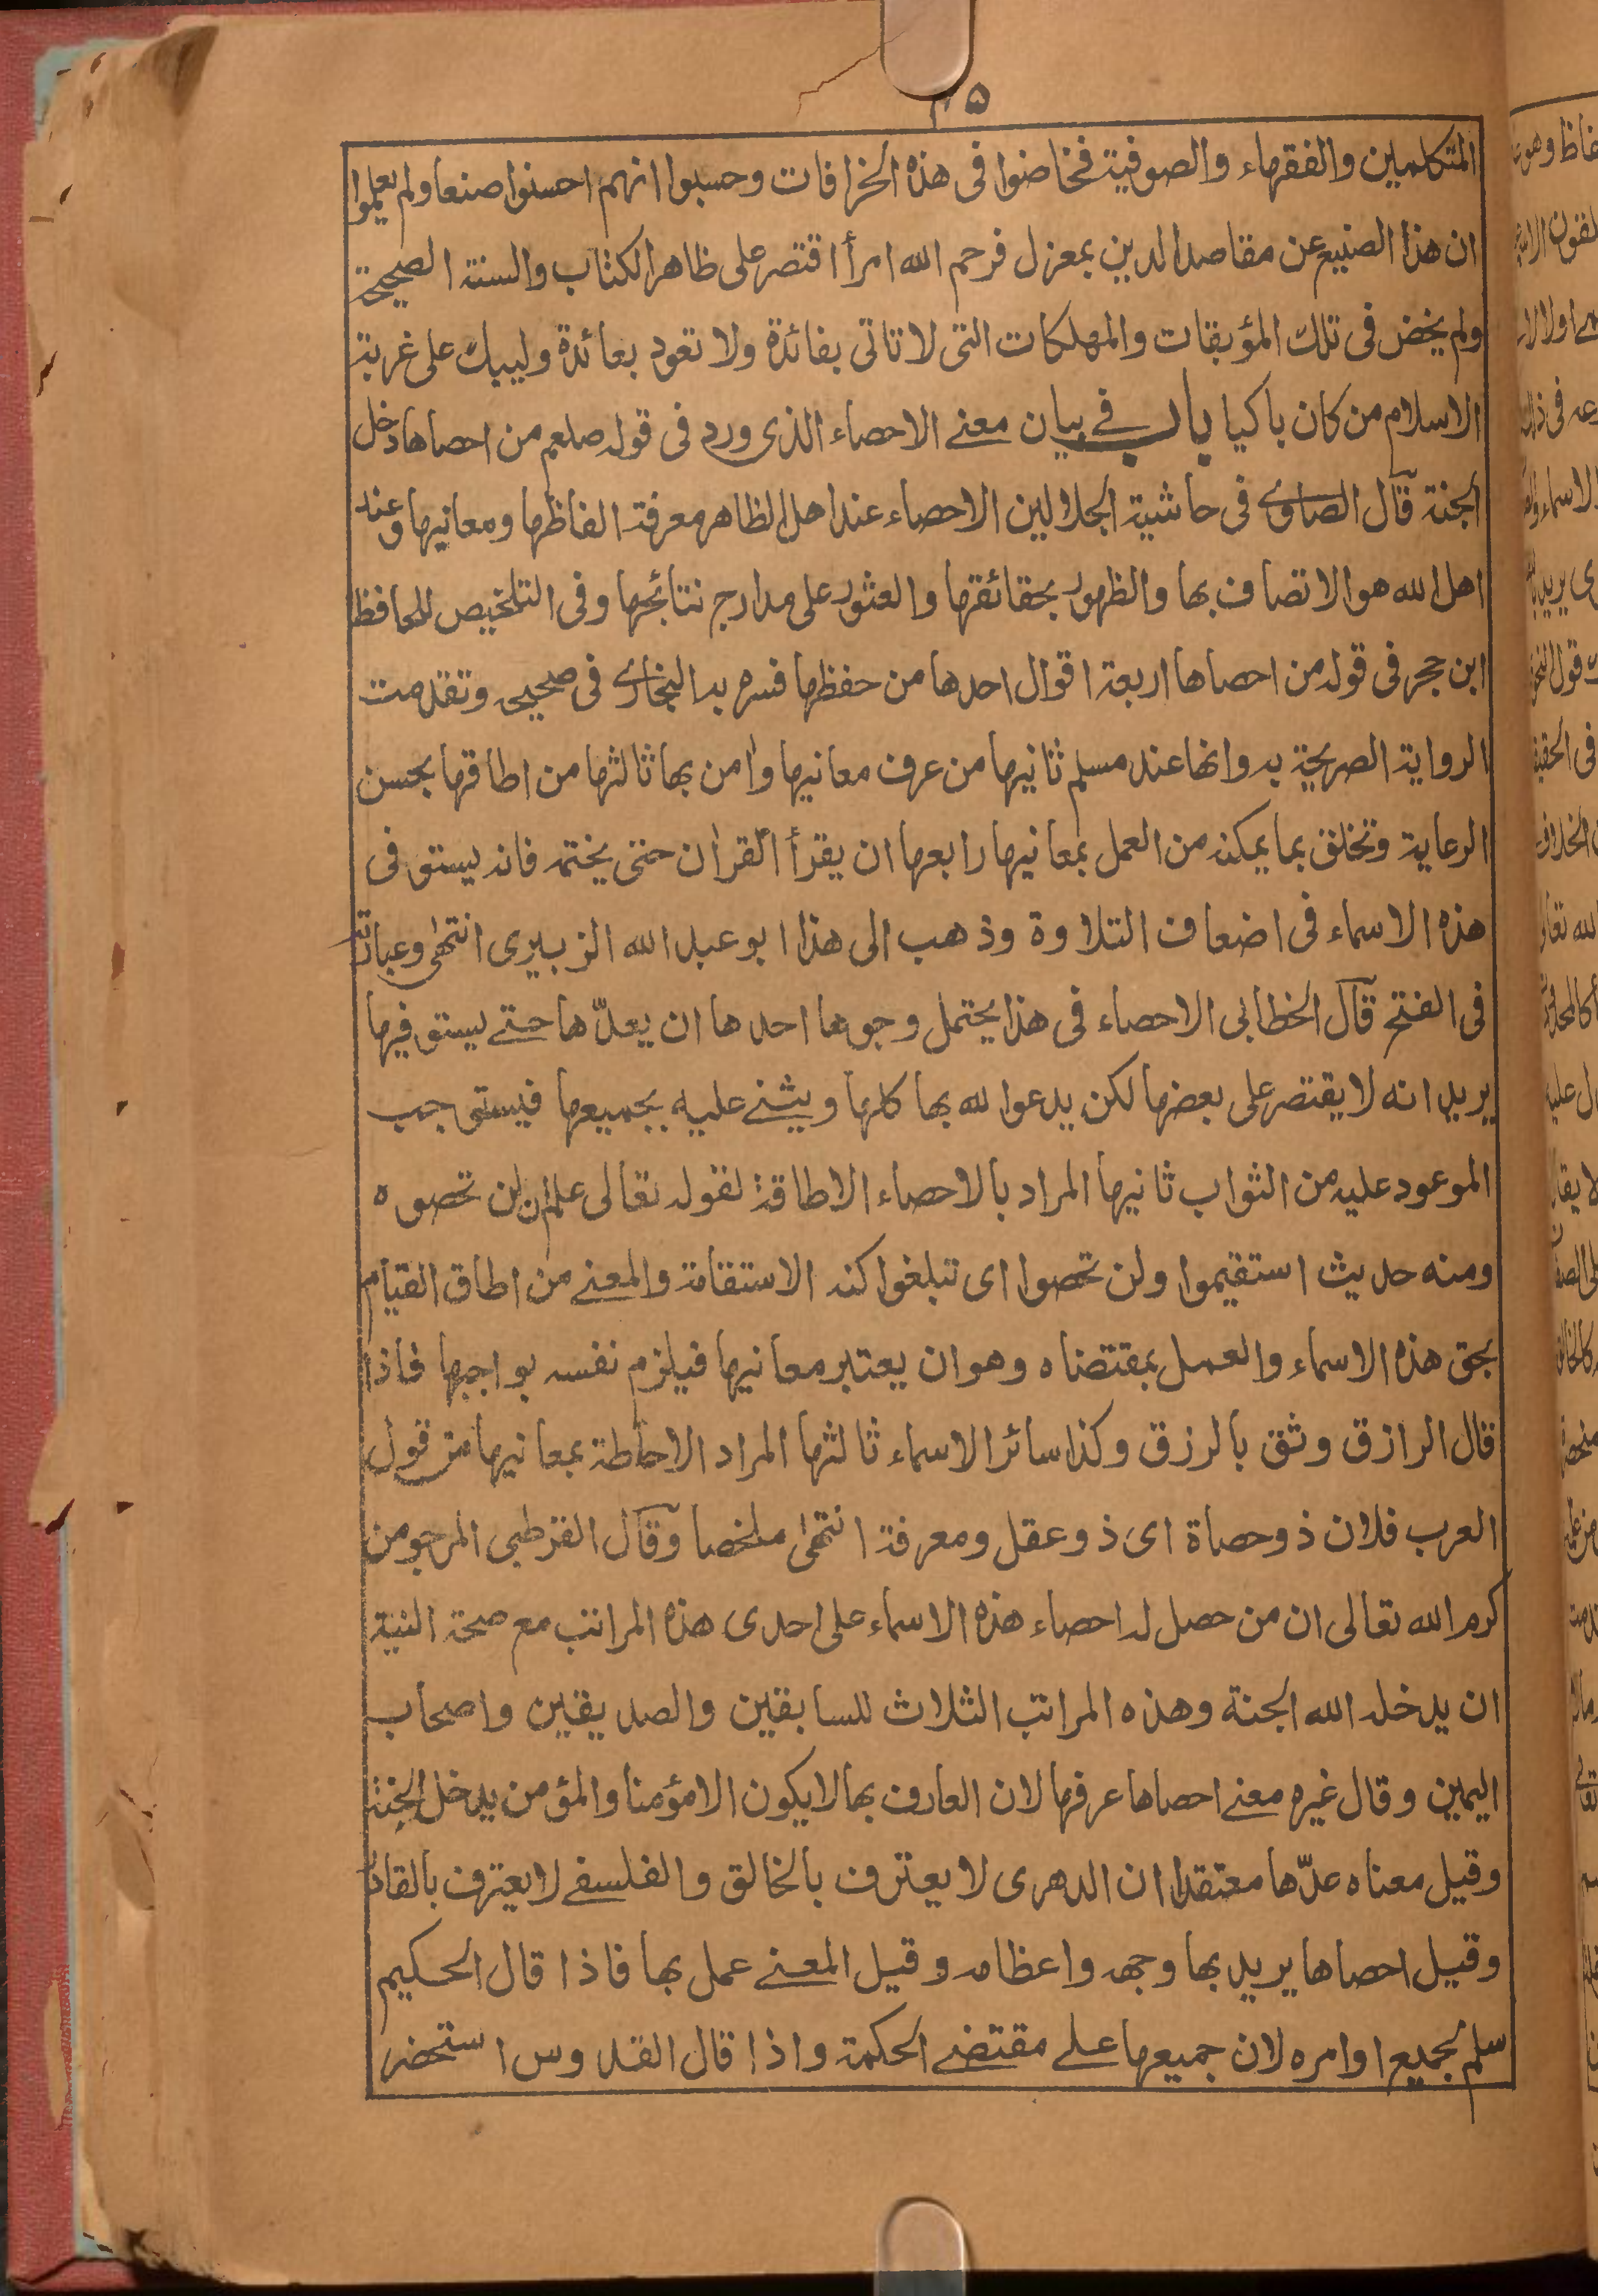 المتكلمين والفقهاء والصوفية فخاضوا فى هذه الخرافات وحسبوا انهم احسنوا صنعا ولم يعلموا
ان هذا الصنيع عن مقاصد الدين بمعزل فرحم الله امرأ اقتصر على ظاهر الكتاب والسنة الصحيحة
ولم يخض فى تلك المؤبقات والمهلكات التى لا تاتى بفائدة ولا تعود بعائدة وليبك على غربة
الاسلام من كان باكيا باب فى بيان معنى الاحصاء الذى ورد فى قوله صلعم من احصاها دخل
الجنة قال الصاوى فى حاشية الجلالين الاحصاء عند اهل الظاهر معرفة الفاظها ومعانيها وعند
اهل الله هو الاتصاف بها والظهور بحقائقها والعثور على مدارج نتائجها وفى التلخيص للحافظ
ابن حجر فى قوله من احصاها اربعة اقوال احدها من حفظها فسره به البخارى فى صحيحه وتقدمت
الرواية الصريحة به وانها عند مسلم ثانيها من عرف معانيها وامن بها ثالثها من اطاقها بحسن
الرعاية وتخلق بما يمكنه من العمل بمعانيها رابعها ان يقرأ القران حتى يختمه فانه يستوفى
هذه الاسماء فى اضعاف التلاوة وذهب الى هذا ابو عبد الله الزبيرى انتهى وعبارته
فى الفتح قال الخطابى الاحصاء فى هذا يحتمل وجوها احدها ان يعدّها حتى يستوفيها
يريد انه لا يقتصر على بعضها لكن يدعوا لله بها كلها ويثنى عليه بجميعها فيستوجب
الموعود عليه من الثواب ثانيها المراد بالاحصاء الاطاقة لقوله تعالى علم ان لن تحصوه
ومنه حديث استقيموا ولن تحصوا اى تبلغوا كنه الاستقامة والمعنى من اطاق القيام
بحق هذه الاسماء والعمل بمقتضاه وهو ان يعتبر معانيها فيلزم نفسه بواجبها فاذا
قال الرازق وثق بالرزق وكذا سائر الاسماء ثالثها المراد الاحاطة بمعانيها من قول
العرب فلان ذو حصاة اى ذو عقل ومعرفة انتهى ملخصا وقال القرطبى المرجو من
كرم الله تعالى ان من حصل له احصاء هذه الاسماء على احدى هذه المراتب مع صحة النية
ان يدخله الله الجنة وهذه المراتب الثلاث للسابقين والصديقين واصحاب
اليمين وقال غيره معنى احصاها عرفها لان العارف بها لا يكون الا مؤمنا والمؤمن يدخل الجنة
وقيل معناه عدّها معتقدا ان الدهرى لا يعترف بالخالق والفلسفى لا يعترف بالقادر
وقيل احصاها يريد بها وجهه واعظامه وقيل المعنى عمل بها فاذا قال الحكيم
سلم بجميع اوامره لان جميعها على مقتضى الحكمة واذا قال القدوس استحضر